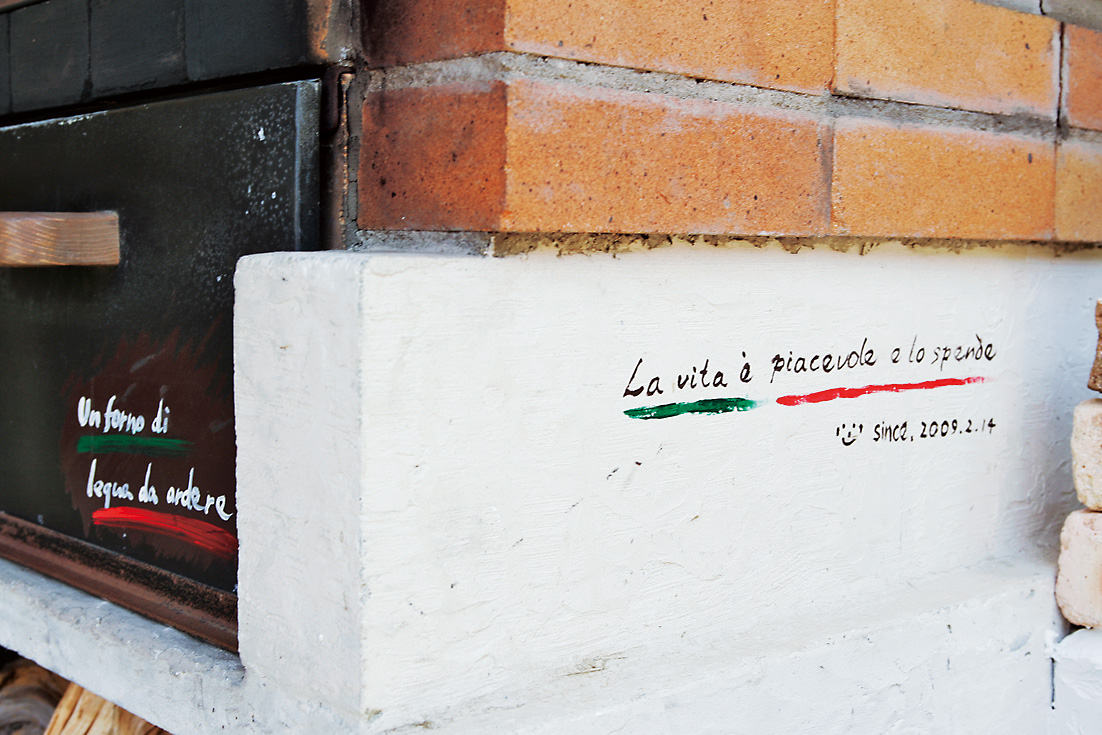 Un forno di
legna da ardere
La vita è piacevole e lo spende
since, 2009.2.14